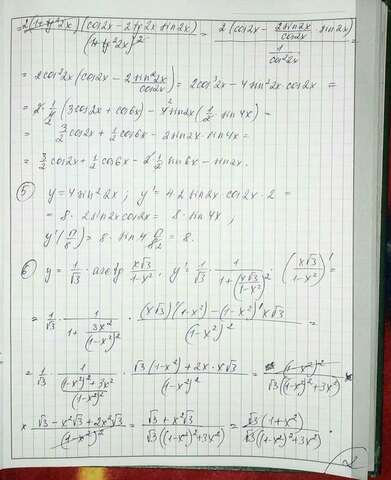 2(1+tg²2x)(cos2x - 2tg2x sin2x) / (1+tg²2x)² = 2(cos2x - 2sin2x/cos2x · sin2x) / (1/cos²2x) =
= 2cos²2x(cos2x - 2sin²2x/cos2x) = 2cos³2x - 4sin²2x cos2x =
= 2·1/4(3cos2x + cos6x) - 4sin2x(1/2 · sin4x) =
= 3/2 cos2x + 1/2 cos6x - 2sin2x·sin4x =
= 3/2 cos2x + 1/2 cos6x - 2·1/2 sin6x - sin2x.
5 y = 4sin²2x; y' = 4·2sin2x·cos2x·2 =
= 8·2sin2xcos2x = 8·sin4x;
y'(π/8) = 8·sin4·π/8 = 8.
6 y = 1/√3 · arctg x√3/(1-x²). y' = 1/√3 · 1/(1+(x√3/(1-x²))²) · (x√3/(1-x²))' =
= 1/√3 · 1/(1+3x²/(1-x²)²) · ((x√3)'(1-x²) - (1-x²)'x√3)/(1-x²)² =
= 1/√3 · 1/(((1-x²)²+3x²)/(1-x²)²) · (√3(1-x²) + 2x·x√3)/(1-x²)² = (1-x²)²/(√3((1-x²)²+3x²)) ×
× (√3 - x²√3 + 2x²√3)/(1-x²)² = (√3 + x²√3)/(√3((1-x²)²+3x²)) = √3(1+x²)/(√3((1-x²)²+3x²)).
2